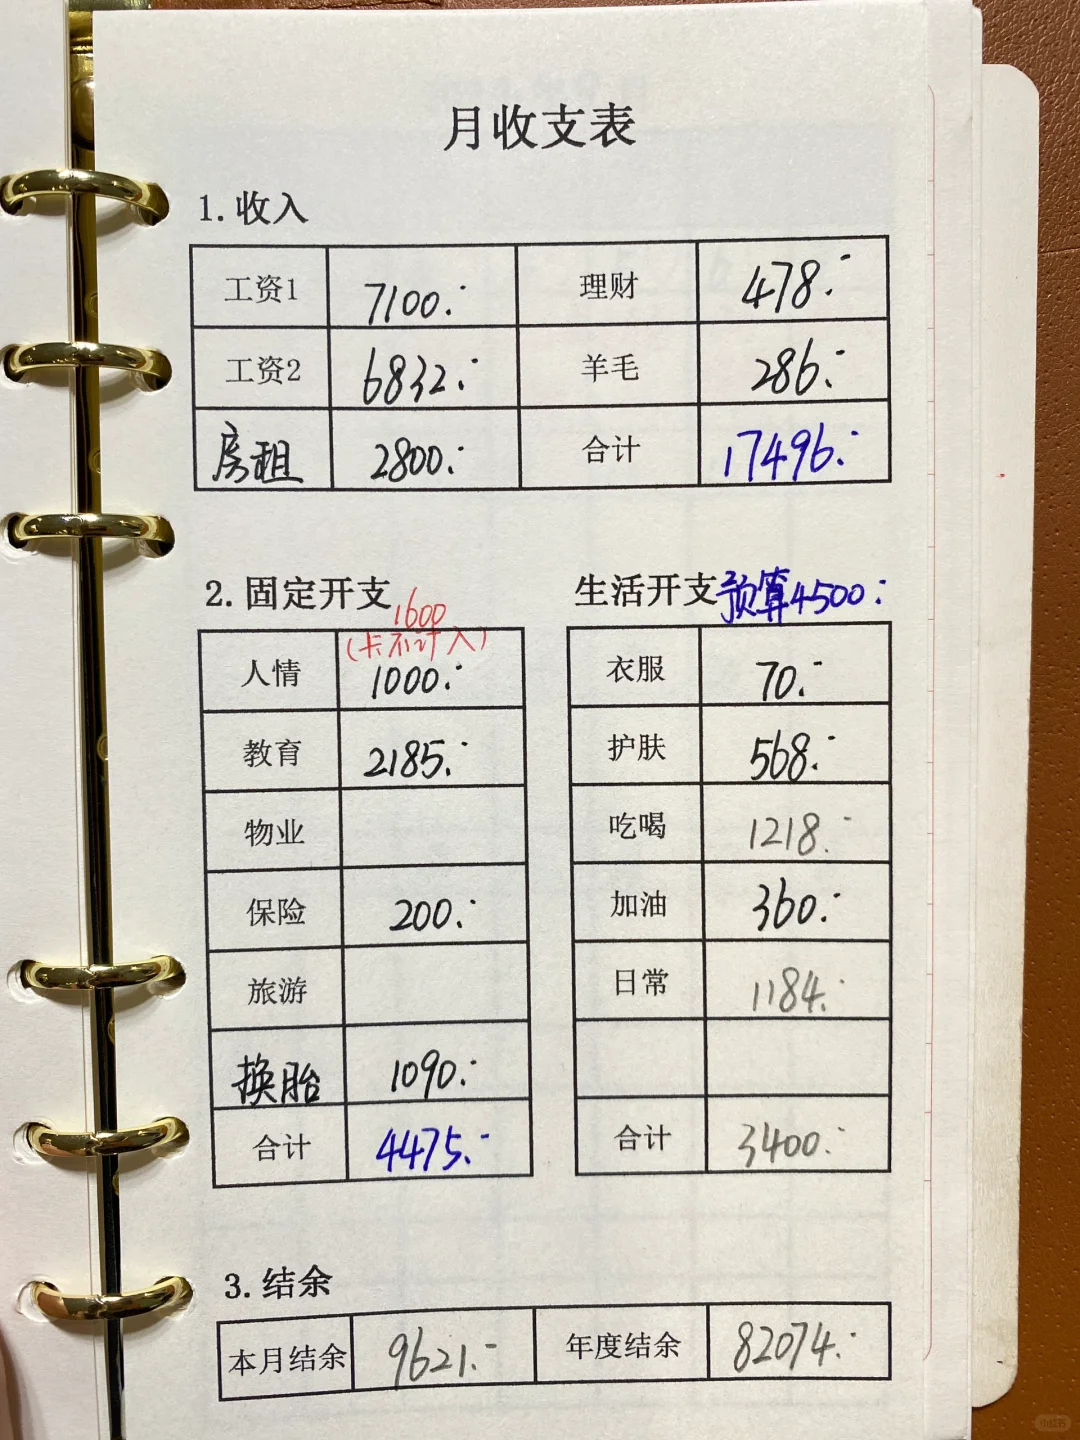 月收支表
1.收入
工资1 7100.- 理财 478.-
工资2 6832.- 羊毛 286.-
房租 2800.- 合计 17496.-
2.固定开支
1600
(卡不计入)
人情 1000.-
教育 2185.-
物业
保险 200.-
旅游
换胎 1090.-
合计 4475.-
生活开支 预算4500.-
衣服 70.-
护肤 568.-
吃喝 1218.-
加油 360.-
日常 1184.-
合计 3400.-
3.结余
本月结余 9621.- 年度结余 82074.-
小红书